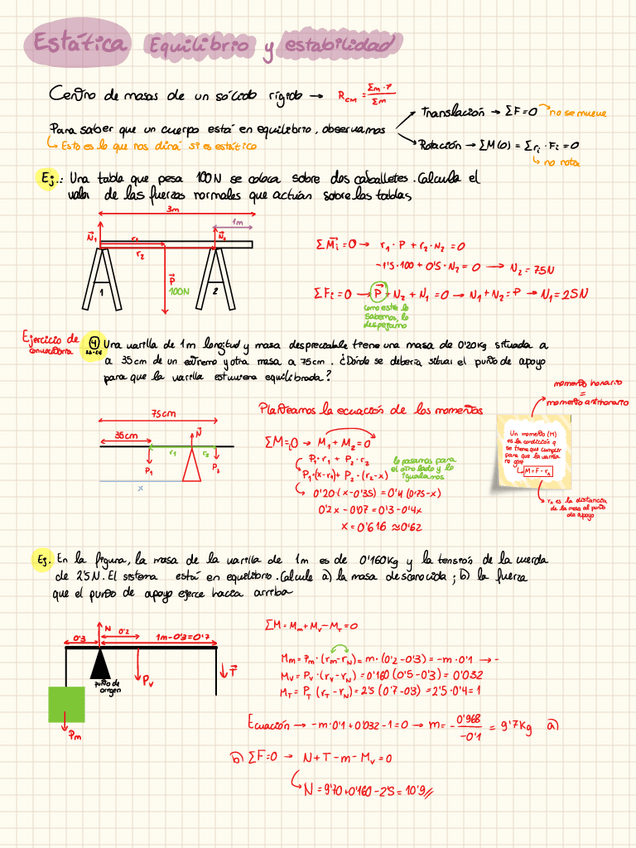 Estática Equilibrio y estabilidad
Centro de masas de un sólido rígido → R_CM = Σm·r / Σm
Translación → ΣF=0 → no se mueve
Para saber que un cuerpo está en equilibrio, observamos
Rotación → ΣM(o) = Σr_i · F_i = 0
Esto es lo que nos dirá si es estático
no rota
Ej.: Una tabla que pesa 100N se coloca sobre dos caballetes. Calcula el
valor de las fuerzas normales que actúan sobre las tablas
3m
1m
N₁
r₁
N₂
r₂
P
100N
1
2
ΣM_i=0 → r₁·P + r₂·N₂ = 0
-1'5·100 + 0'5·N₂ = 0 → N₂ = 75N
ΣF_i=0 → P + N₂ + N₁ = 0 → N₁+N₂ = P → N₁ = 25N
como este lo
sabemos, lo
despejamos
Ejercicio de
convocatoria
4
Una varilla de 1m longitud y masa despreciable tiene una masa de 0'20kg situada a
a 35cm de un extremo y otra masa a 75cm. ¿Dónde se debería situar el punto de apoyo
para que la varilla estuviera equilibrada?
momento horario
=
momento antihorario
Planteamos la ecuación de los momentos
75cm
35cm
N
r₁
r₂
P₁
P₂
x
ΣM=0 → M₁ + M₂ = 0
P₁·r₁ + P₂·r₂
P₁·(x-r₁) + P₂·(r₂-x)
lo pasamos para
el otro lado y lo
igualamos
0'20·(x-0'35) = 0'4(0'75-x)
0'2x - 0'07 = 0'3 - 0'4x
x = 0'616 ≈ 0'62
Un momento (M)
es la condición q
se tiene que cumplir
para que la varilla
no gire
M = F · r₂
r₂ es la distancia
de la masa al punto
de apoyo
Ej. En la figura, la masa de la varilla de 1m es de 0'160kg y la tensión de la cuerda
de 2'5N. El sistema está en equilibrio. Calcule a) la masa desconocida; b) la fuerza
que el punto de apoyo ejerce hacia arriba
N
0'3
0'2
1m-0'3=0'7
punto de
origen
P_v
T
P_m
ΣM = M_m + M_v - M_T = 0
M_m = P_m·(r_m - r_N) = m·(0'2-0'3) = -m·0'1 → -
M_v = P_v·(r_v - r_N) = 0'160(0'5-0'3) = 0'032
M_T = P_T (r_T - r_N) = 2'5(0'7-0'3) = 2'5·0'4 = 1
Ecuación → -m·0'1 + 0'032 - 1 = 0 → m = - 0'968 / -0'1 = 9'7kg a)
b) ΣF=0 → N + T - m - M_v = 0
N = 9'70 + 0'160 - 2'5 = 10'9